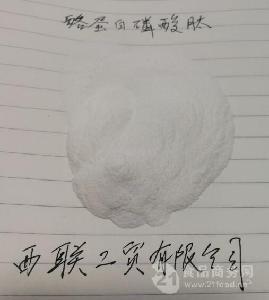 酪蛋白磷酸肽
西联工贸有限公司
食品商务网
21food.cn